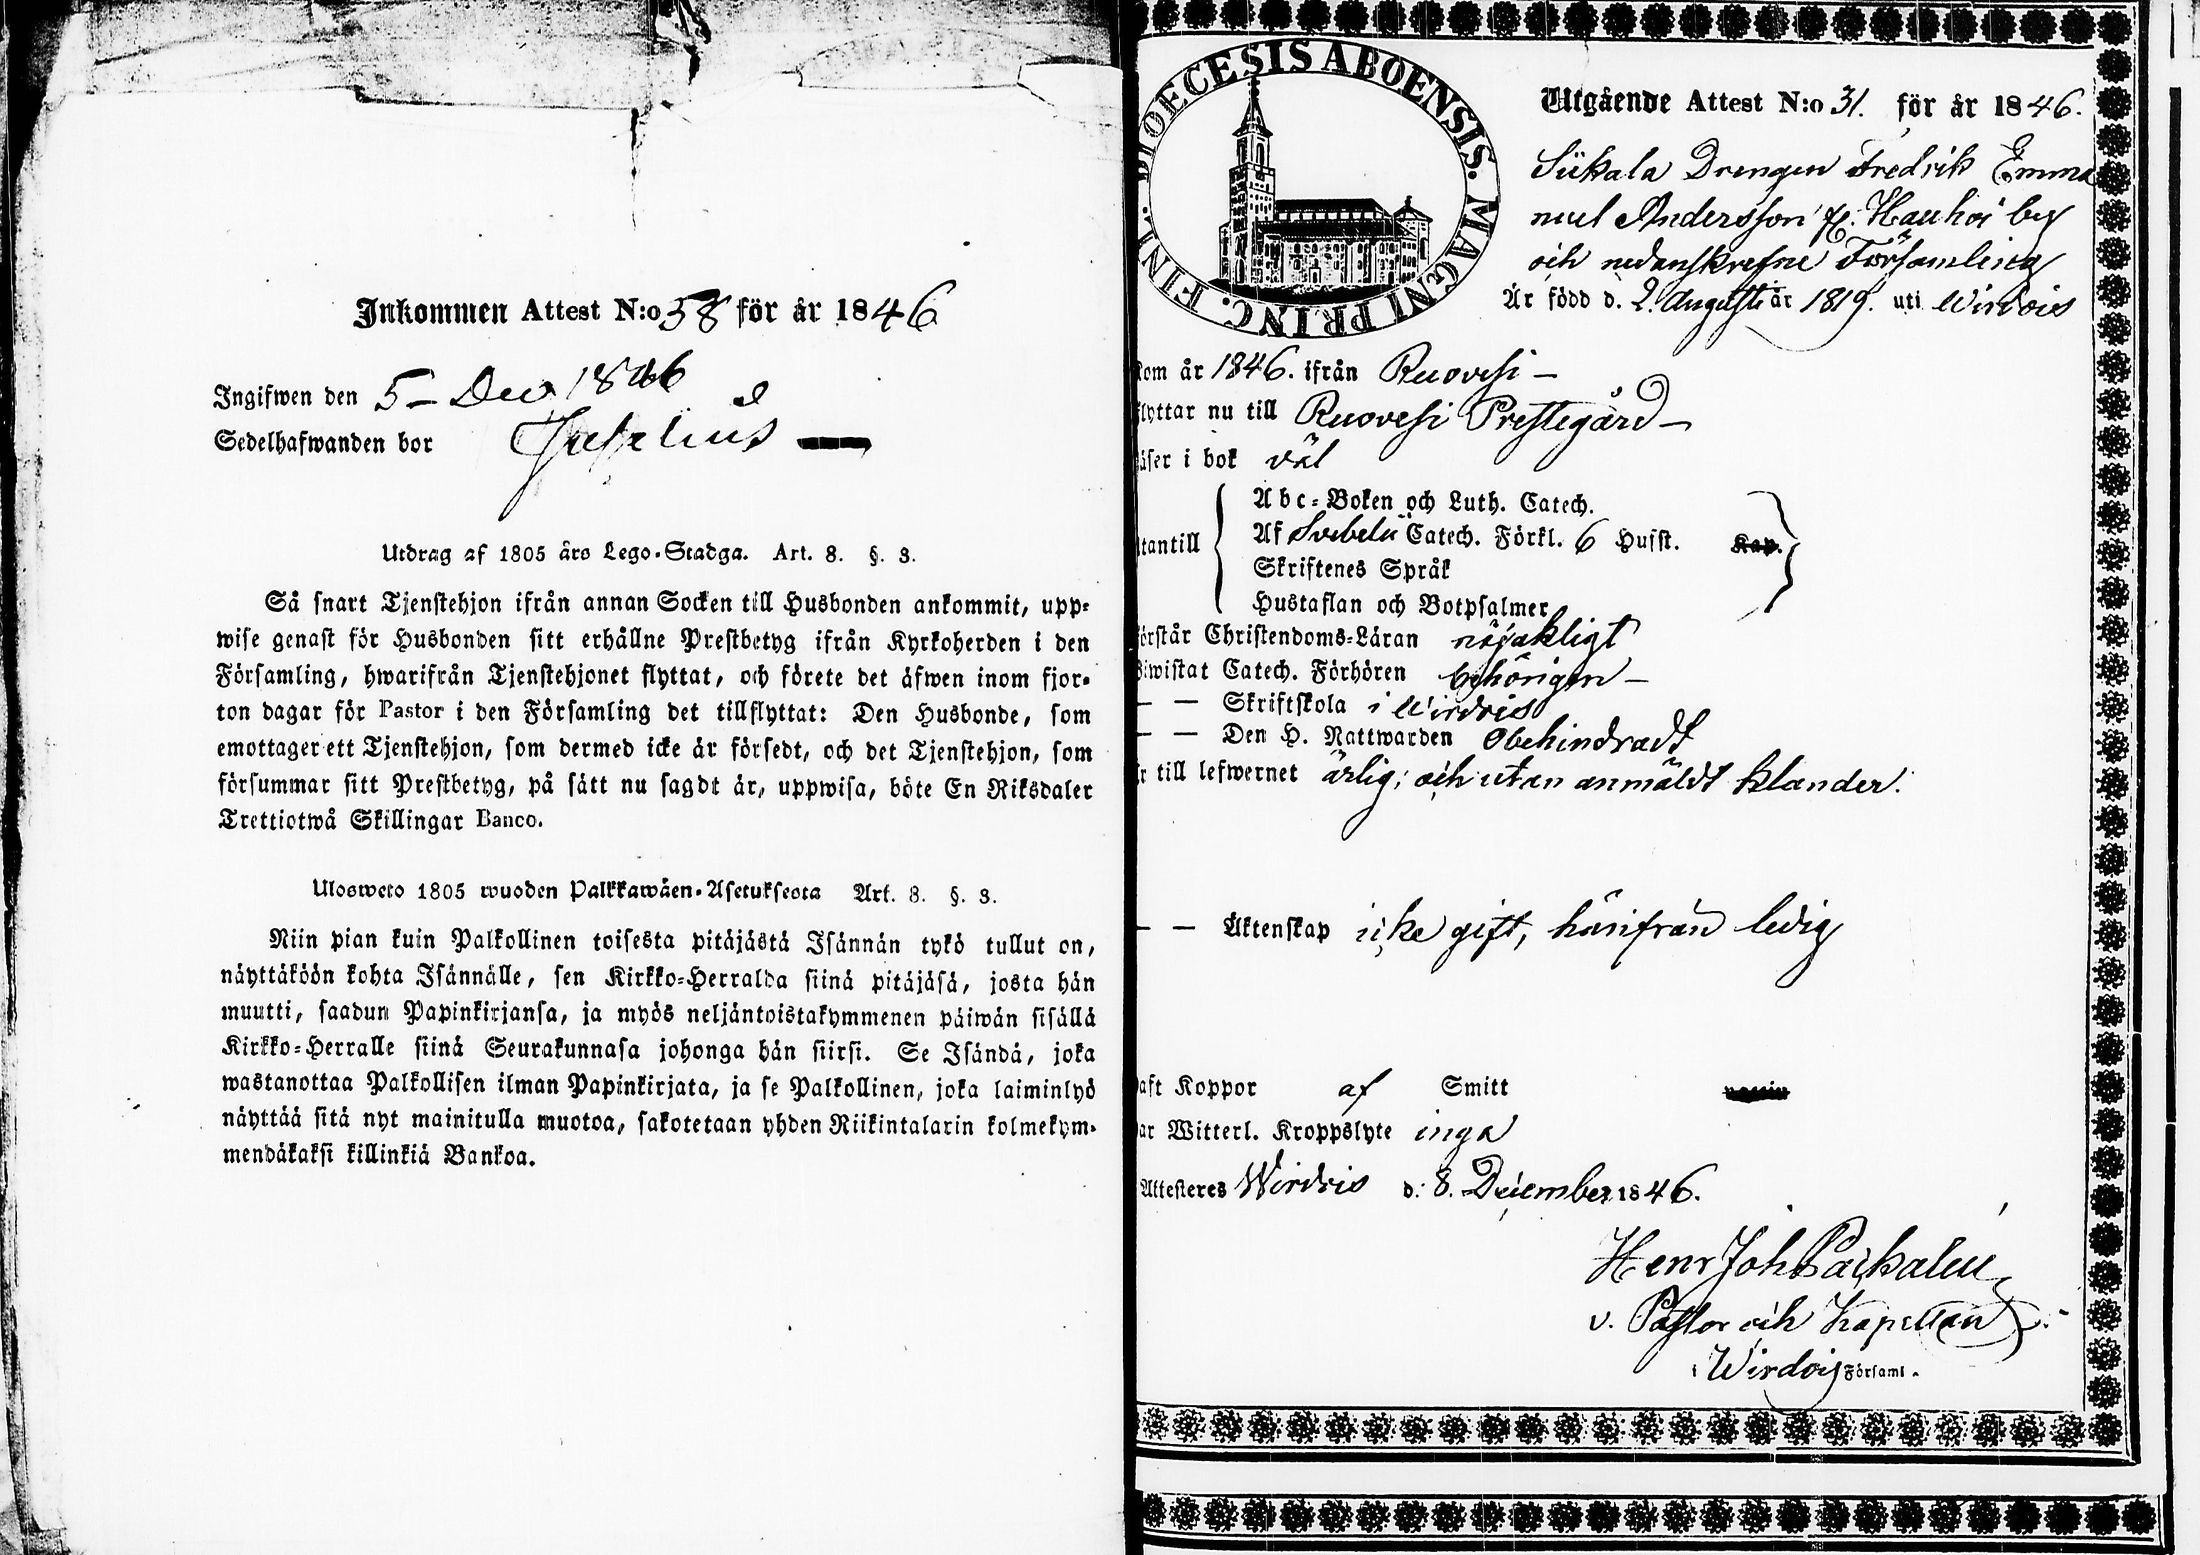 Inkommen Attest N:o 58 för år 1846
Ingifwen den 5 – Dec 1846
Sedelhafwanden bor
Utdrag af 1805 års Lego-Stadga. Art. 8. §. 3.
Så snart Tjenstehjon ifrån annan Socken till Husbonden ankommit, upp-
wise genast för Husbonden sitt erhållne Prestbetyg ifrån Kyrkoherden i den
Församling, hwarifrån Tjenstehjonet flyttat, och förete det äfwen inom fjor-
ton dagar för Pastor i den Församling det tillflyttat: Den Husbonde, som
emottager ett Tjenstehjon, som dermed icke är försedt, och det Tjenstehjon, som
försummar sitt Prestbetyg, på sätt nu sagdt är, uppwisa, böte En Riksdaler
Trettiotwå Skillingar Banco.
Ulosweto 1805 wuoden Palkkawäen-Asetuksesta Art. 8. §. 3.
Niin pian kuin Palkollinen toisesta pitäjästä Isännän tykö tullut on,
näyttäköön kohta Isännälle, sen Kirkko-Herralda siinä pitäjäsä, josta hän
muutti, saadun Papinkirjansa, ja myös neljäntoistakymmenen päiwän sisällä
Kirkko-Herralle siinä Seurakunnasa johonga hän siirsi. Se Isändä, joka
wastanottaa Palkollisen ilman Papinkirjata, ja se Palkollinen, joka laiminlyö
näyttää sitä nyt mainitulla muotoa, sakotetaan yhden Riikintalarin kolmekym-
mendäkaksi killinkiä Bankoa.
DIOECESIS ABOENSIS. MAGNI PRINC. FINL.
Utgående Attest N:o 31. för år 1846.
Siikala Drengen Fredrik Emma
nuel Andersson fr. Hauhoi by
och nedanskrefne Församling
Är född d. 2 Augusti år 1819. uti Wirdois
kom år 1846. ifrån Ruovesi –
flyttar nu till Ruovesi Prestegård –
läser i bok väl
utantill
Abc-Boken och Luth. Catech.
Af Svebelii Catech. Förkl. 6 Hufst. Kap.
Skriftenes Språk
Hustaflan och Botpsalmer
förstår Christendoms-Läran nöjakligt
Biwistat Catech. Förhören behörigen –
— — Skriftskola i Wirdois
— — Den H. Nattwarden obehindradt
är till lefwernet ärlig, och utan anmäldt klander.
— — Äktenskap icke gift, härifrån ledig
haft Koppor af Smitt
har Witterl. Kroppslyte inga
Attesteres Wirdois d. 8. December 1846.
Henr Joh Paikalen
v. Pastor och Kapellan
i Wirdois Församl.